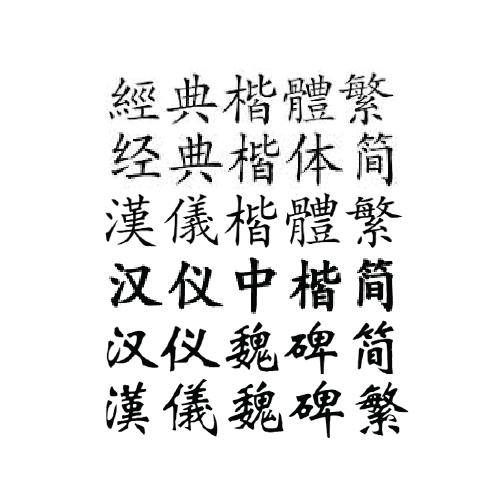 經典楷體繁
经典楷体简
漢儀楷體繁
汉仪中楷简
汉仪魏碑简
漢儀魏碑繁